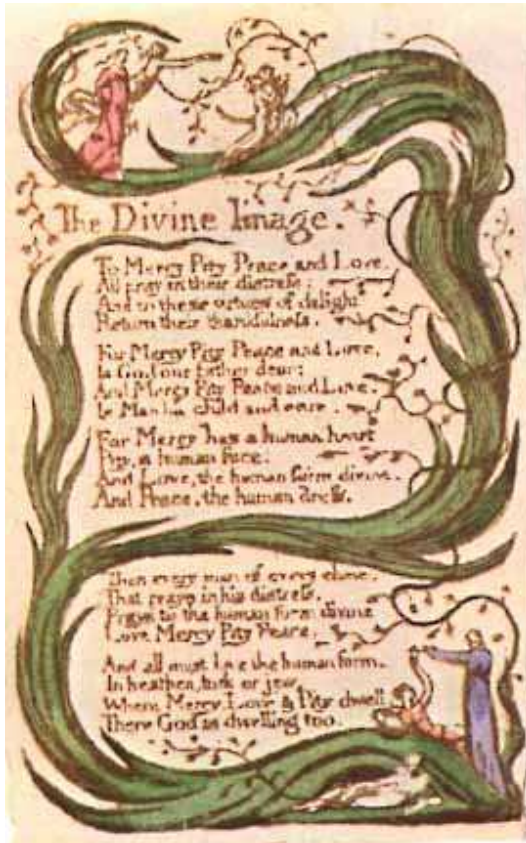 The Divine Image.
To Mercy Pity Peace and Love,
All pray in their distress:
And to these virtues of delight
Return their thankfulness.
For Mercy Pity Peace and Love,
Is God our father dear:
And Mercy Pity Peace and Love,
Is Man his child and care.
For Mercy has a human heart
Pity, a human face:
And Love, the human form divine,
And Peace, the human dress.
Then every man of every clime,
That prays in his distress,
Prays to the human form divine
Love Mercy Pity Peace,
And all must love the human form,
In heathen, turk or jew.
Where Mercy, Love & Pity dwell,
There God is dwelling too.